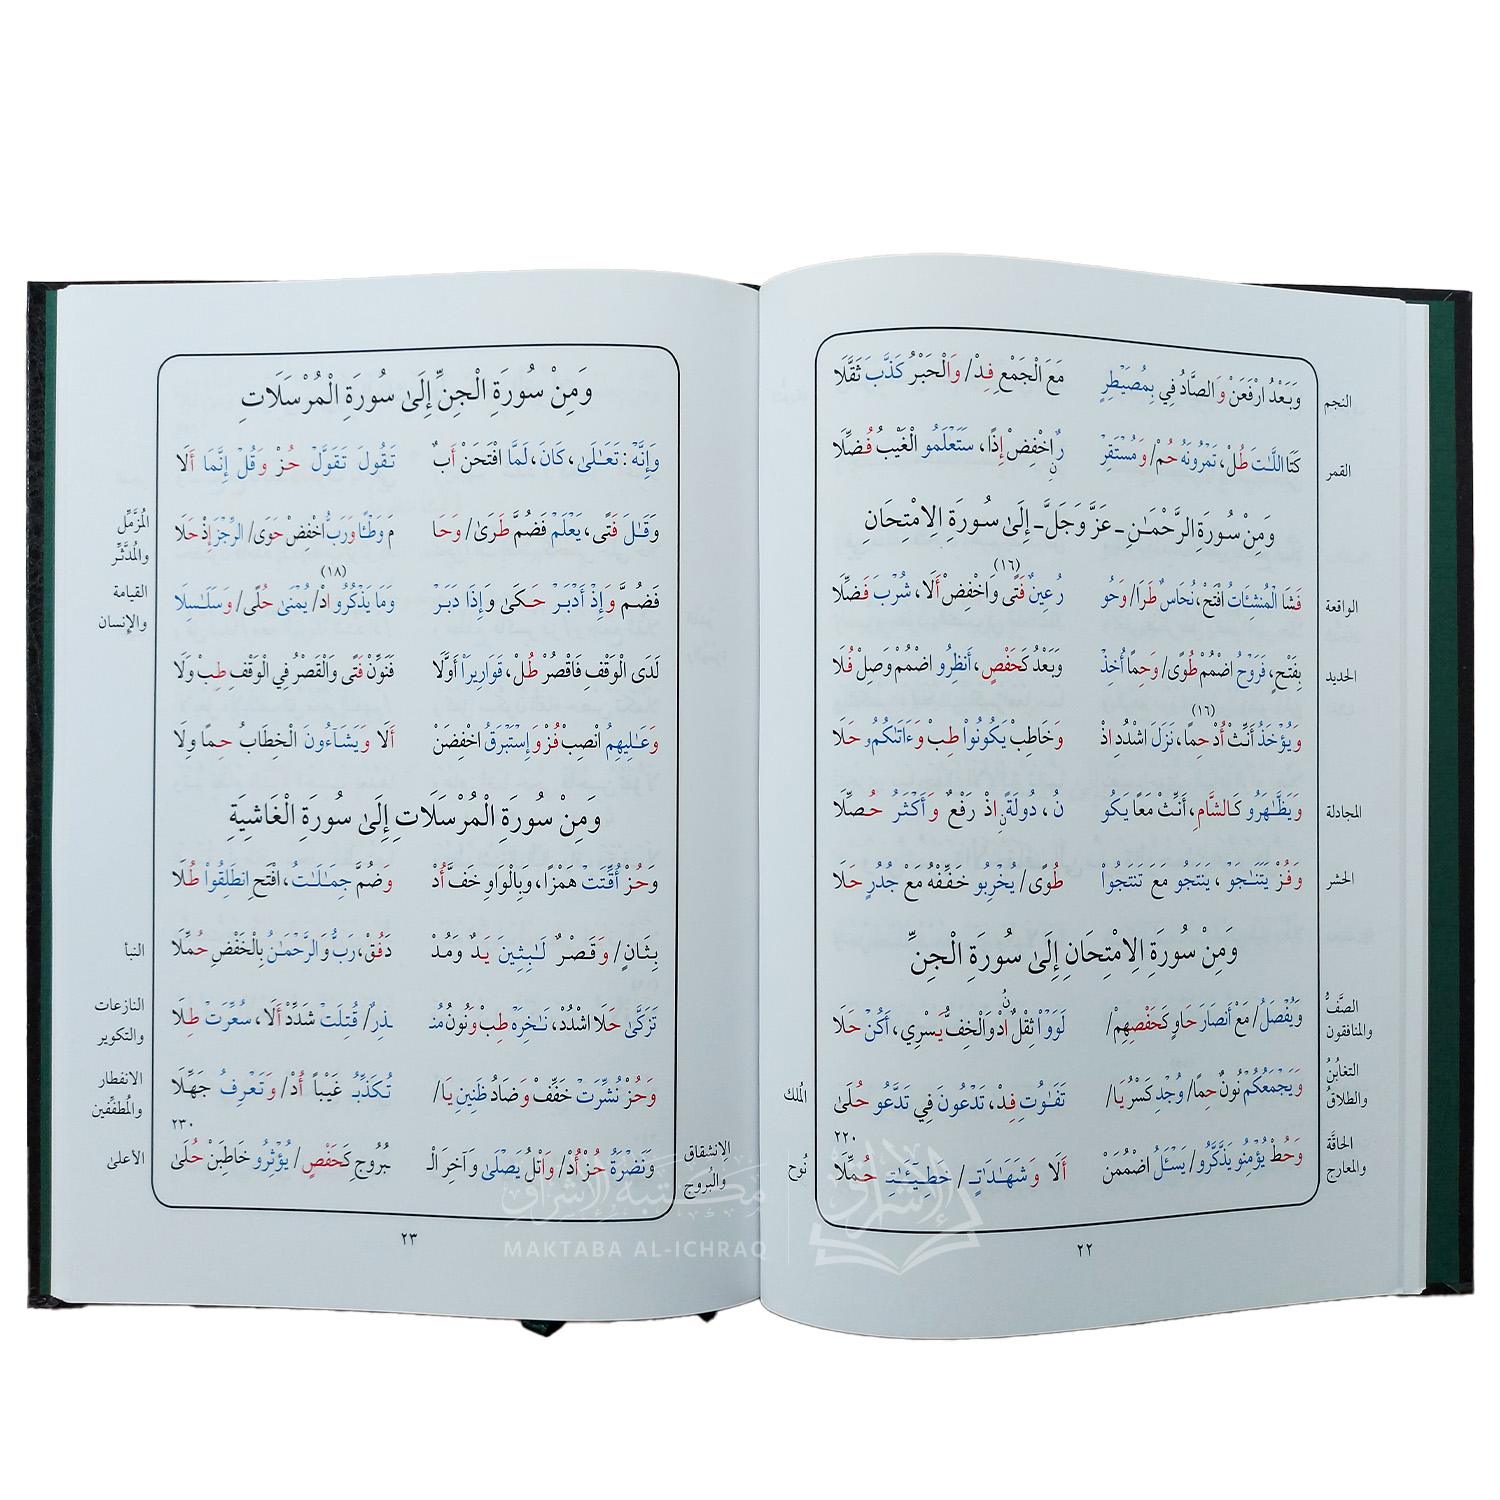 النجم
وَبَعْدُ ارْفَعَنْ وَالصَّادُ فِي بِمُصَيْطِرٍ مَعَ الْجَمْعِ فِدْ/ وَالْحَبْرُ كَذَّبَ ثَقَّلَا
القمر
كَتَا اللَّاتَ طُلْ، تَمْرُونَهُ حُمْ/ وَمُسْتَقِرْ رٌ اخْفِضْ إِذًا، سَتَعْلَمُو الْغَيْبُ فُضِّلَا
وَمِنْ سُورَةِ الرَّحْمَـٰنِ - عَزَّ وَجَلَّ - إِلَىٰ سُورَةِ الِامْتِحَانِ
(١٦)
الواقعة
فَشَا الْمُنْشِئَاتُ افْتَحْ، نُحَاسٌ طَرَا/ وَحُو رُ عِينٌ فَتًى وَاخْفِضْ أَلَا، شُرْبَ فَضِّلَا
الحديد
بِفَتْحٍ، فَرَوْحٌ اضْمُمْ طُوًى/ وَحِمًا أُخِذْ وَبَعْدُ كَحَفْصٍ، أَنظِرُو اضْمُمْ وَصِلْ فُلَا
(١٦)
وَيُؤْخَذُ أَنِّثْ أُدْ حِمًا، نَزَلَ اشْدُدِ اذْ وَخَاطِبْ يَكُونُوا طِبْ وَءَاتَىٰكُمُو حَلَا
المجادلة
وَيَظَّـٰهَرُو كَالشَّامِ، أَنِّثْ مَعًا يَكُو نُ، دُولَةٌ اذْ رَفْعٌ وَأَكْثَرُ حُصِّلَا
الحشر
وَفُزْ يَتَنَـٰجَوْ، يَنْتَجُو مَعَ تَنتَجُوا طُوًى/ يُخْرِبُو خَفِّفْهُ مَعْ جُدُرٍ حَلَا
وَمِنْ سُورَةِ الِامْتِحَانِ إِلَىٰ سُورَةِ الْجِنِّ
الصَّفُّ
والمنافقون
وَيُفْصَلُ/ مَعْ أَنصَارَ حَاوٍ كَحَفْصِهِمْ/ لَوَوْا ثِقْلٌ ادْ وَالْخِفُّ يَسْرِي، أَكُنْ حَلَا
التغابُنُ
والطلاقُ
وَيَجْمَعُكُمْ نُونٌ حِمًا/ وُجْدِ كَسْرُ يَا/ تَفَـٰوُتِ فِدْ، تَدْعُونَ فِي تَدَّعُو حُلَىٰ
المُلك
٢٢٠
الحاقَّة
والمعارج
وَحُطْ يُؤْمِنُو يَذَّكَّرُو/ يَسْـَٔلُ اضْمُمَنْ أَلَا وَشَهَـٰدَاتِ/ خَطِيٓـَٔـٰتِ حُمِّلَا
نُوح
٢٢
وَمِنْ سُورَةِ الْجِنِّ إِلَىٰ سُورَةِ الْمُرْسَلَاتِ
وَإِنَّهُ: تَعَـٰلَىٰ، كَانَ، لَمَّا افْتَحَنْ أَبٌ تَقُولَ تَقَوَّلَ حُزْ وَقُلْ إِنَّمَا أَلَا
المُزَّمِّل
والمُدَّثِّر
وَقَـٰلَ فَتًى، يَعْلَمْ فَضُمَّ طَرَىٰ/ وَحَا مَ وَطْـًٔا وَرَبُّ اخْفِضْ حَوَى/ الرِّجْزَ إِذْ حَلَا
(١٨)
القيامة
والإنسان
فَضُمَّ وَإِذْ أَدْبَرَ حَكَىٰ وَإِذَا دَبَرْ وَمَا يَذْكُرُو ادْ/ يُمْنَىٰ حُلًى/ وَسَلَـٰسِلَا
لَدَى الْوَقْفِ فَاقْصُرْ طُلْ، قَوَارِيرَا أَوَّلَا فَنَوِّنْ فَتًى وَالْقَصْرُ فِي الْوَقْفِ طِبْ وَلَا
وَعَـٰلِيهِمُ انْصِبْ فُزْ وَإِسْتَبْرَقُ اخْفِضَنْ أَلَا وَيَشَآءُونَ الْخِطَابُ حِمًا وِلَا
وَمِنْ سُورَةِ الْمُرْسَلَاتِ إِلَىٰ سُورَةِ الْغَاشِيَةِ
وَحُزْ أُقِّتَتْ هَمْزًا، وَبِالْوَاوِ خَفَّ أُدْ وَضُمَّ جِمَـٰلَـٰتٌ، افْتَحِ انطَلِقُوا طُلَا
النبأ
بِثَانٍ/ وَقَصْرٌ لَـٰبِثِينَ يَدٌ وَمُدْ دَ فُقْ، رَبُّ وَالرَّحْمَـٰنُ بِالْخَفْضِ حُمِّلَا
النازعات
والتكوير
تَزَكَّىٰ حَلَا اشْدُدْ، نَـٰخِرَهْ طِبْ وَنُونُ مُنـ ـذِرٌ/ قُتِلَتْ شَدِّدْ أَلَا، سُعِّرَتْ طِلَا
الانفطار
والمُطفِّفين
وَحُزْ نُشِّرَتْ خَفِّفْ وَضَادُ ظَنِينِ يَا/ تُكَذِّبُ غَيْبًا أُدْ/ وَتَعْرِفُ جَهِّلَا
الانشقاق
والبُروج
٢٣٠
وَنَضْرَةُ حُزْ أُدْ/ وَاتْلُ يَصْلَىٰ وَآخِرَ الْـ ـبُرُوجِ كَحَفْصٍ/ يُؤْثِرُو خَاطِبَنْ حُلَىٰ
الأعلىٰ
٢٣
مكتبة الإشراق
MAKTABA AL-ICHRAQ
الإشراق